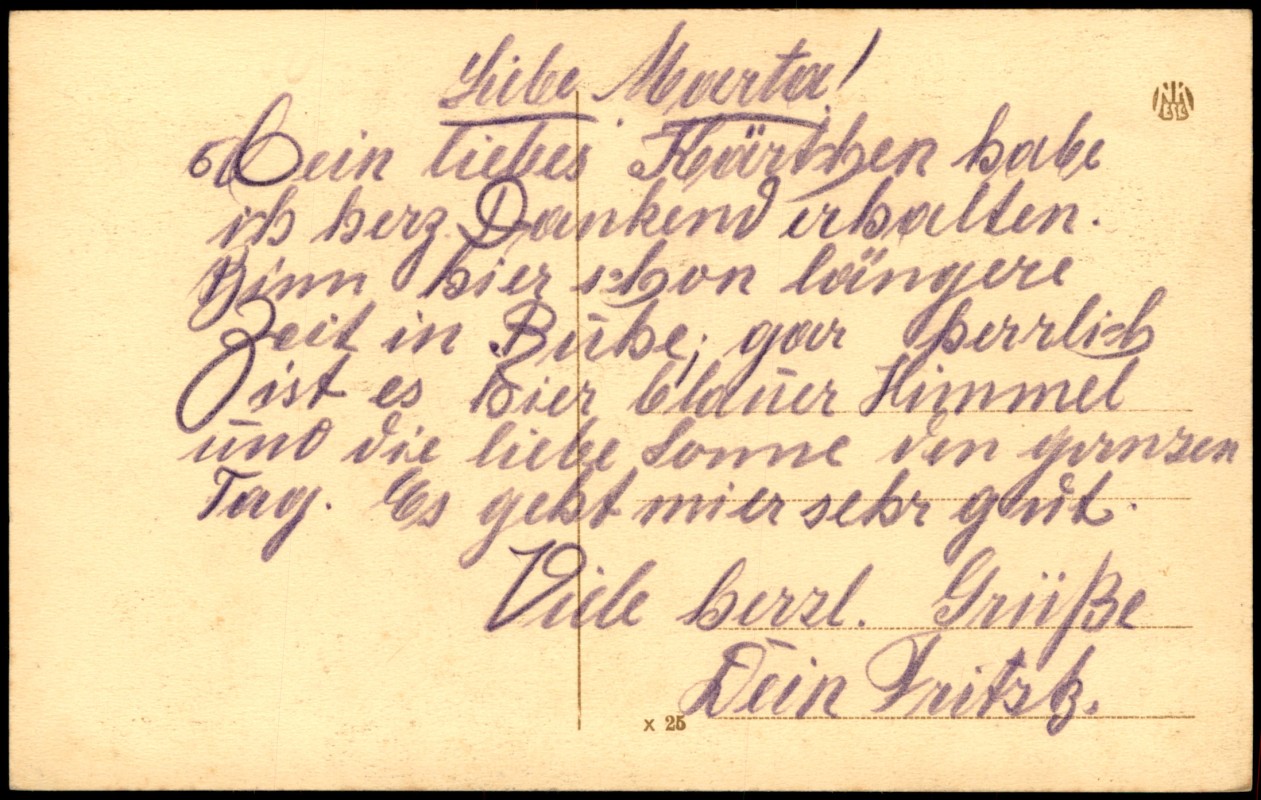 Liebe Marta!
Dein liebes Kärtchen habe
ich herz. Dankend erhalten.
Binn hier schon längere
Zeit in Ruhe, gar herrlich
ist es hier blauer Himmel
und die liebe Sonne den ganzen
Tag. Es geht mier sehr gut.
Viele herzl. Grüße
Dein
NK
x 25